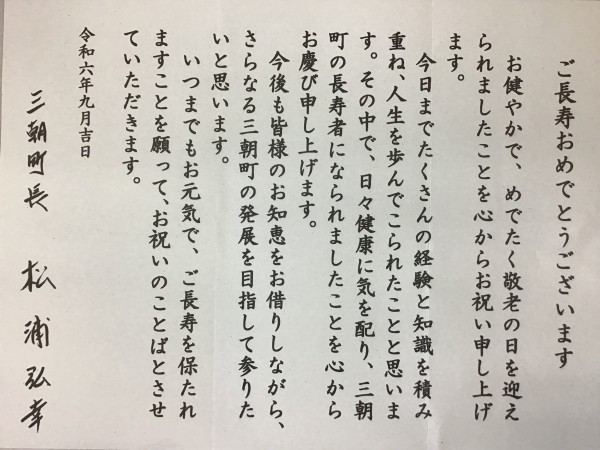 ご長寿おめでとうございます
お健やかで、めでたく敬老の日を迎え
られましたことを心からお祝い申し上げ
ます。
今日までたくさんの経験と知識を積み
重ね、人生を歩んでこられたことと思いま
す。その中で、日々健康に気を配り、三朝
町の長寿者になられましたことを心から
お慶び申し上げます。
今後も皆様のお知恵をお借りしながら、
さらなる三朝町の発展を目指して参りた
いと思います。
いつまでもお元気で、ご長寿を保たれ
ますことを願って、お祝いのことばとさせ
ていただきます。
令和六年九月吉日
三朝町長 松浦弘幸